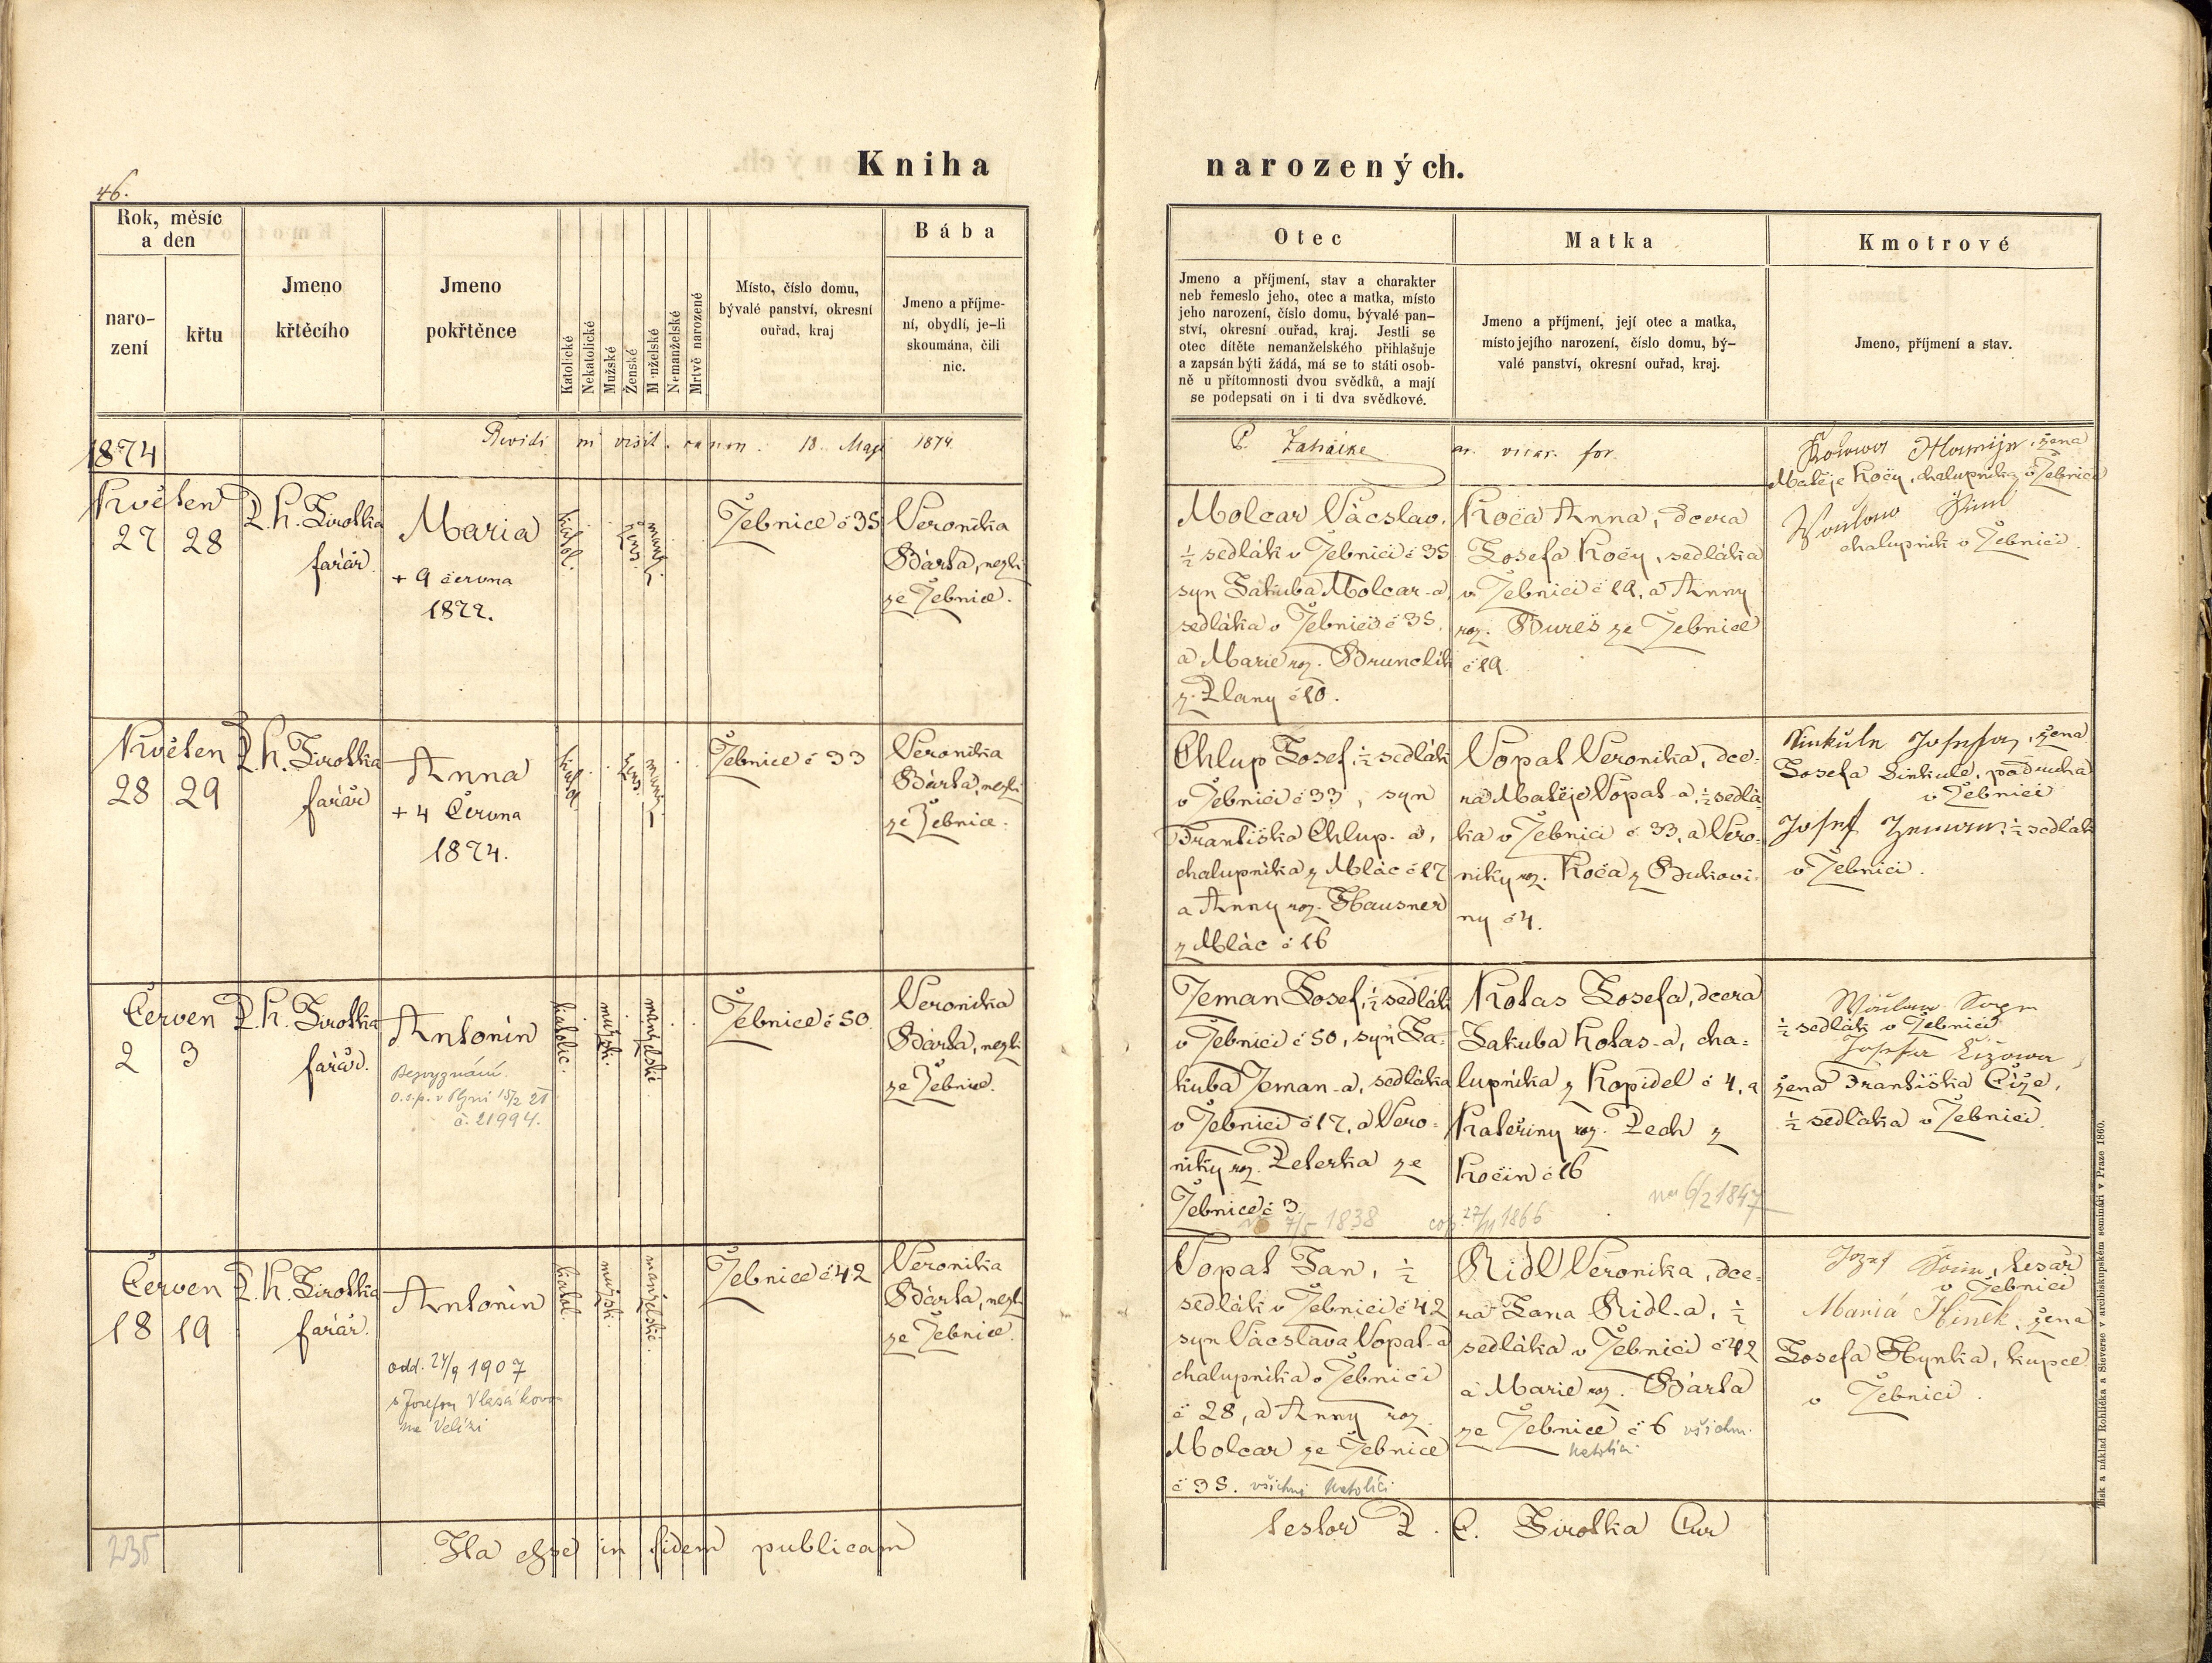 46.
Kniha narozených.
Rok, měsíc a den
naro-
zení
křtu
Jmeno
křtěcího
Jmeno
pokřtěnce
Katolické
Nekatolické
Mužské
Ženské
M nželské
Nemanželské
Mrtvě narozené
Místo, číslo domu,
bývalé panství, okresní
ouřad, kraj
Bába
Jmeno a příjme-
ní, obydlí, je-li
skoumána, čili
nic.
Otec
Jmeno a příjmení, stav a charakter
neb řemeslo jeho, otec a matka, místo
jeho narození, číslo domu, bývalé pan-
ství, okresní ouřad, kraj. Jestli se
otec dítěte nemanželského přihlašuje
a zapsán býti žádá, má se to státi osob-
ně u přítomnosti dvou svědků, a mají
se podepsati on i ti dva svědkové.
Matka
Jmeno a příjmení, její otec a matka,
místo jejího narození, číslo domu, bý-
valé panství, okresní ouřad, kraj.
Kmotrové
Jmeno, příjmení a stav.
1874
Revidi in visit. canon. 18. Maji 1874
ar. vicar. for.
Květen
27 28
P. K. Sirotka
farář.
Maria
+ 9 června
1872.
kathol.
žens.
manž.
Žebnice č 35
Veronika
Bárta, nezk.
ze Žebnice.
Molcar Václav,
½ sedlák v Žebnici č 35
syn Jakuba Molcar-a,
sedláka v Žebnici č 35,
a Marie roz. Brunclík
z Plany č 10.
Koča Anna, dcera
Josefa Koči, sedláka
v Žebnici č 19, a Anny
roz. Bureš ze Žebnice
č 19.
žena
Matěje Koči, chalupníka v Žebnici
chalupník v Žebnici.
Květen
28 29
P. K. Sirotka
farář
Anna
+ 4 Června
1874.
kathol.
žens.
manž.
Žebnice č 33
Veronika
Bárta, nezk.
ze Žebnice.
Chlup Josef, ½ sedlák
v Žebnici č 33, syn
Františka Chlup-a,
chalupníka z Mlác č 17
a Anny roz. Hausner
z Mlác č 16
Vopat Veronika, dce-
ra Matěje Vopat-a, ½ sedlá-
ka v Žebnici č 33, a Vero-
niky roz. Koča z Bukovi-
ny č 4.
Sinkule Josefa, žena
Josefa Sinkule, podruha
v Žebnici
Josef Zeman ½ sedlák
v Žebnici.
Červen
2 3
P. K. Sirotka
farář.
Antonín
Bezvyznání.
o.s.p. v Plzni 15/2 21
č. 21994.
katolic.
mužsk.
manželské
Žebnice č 50.
Veronika
Bárta, nezk.
ze Žebnice.
Zeman Josef, ½ sedlák
v Žebnici č 50, syn Ja-
kuba Zeman-a, sedláka
v Žebnici č 17, a Vero-
niky roz. Peterka ze
Žebnice č 3.
7/5 1838
cop. 27/11 1866
Kotas Josefa, dcera
Jakuba Kotas-a, cha-
lupníka z Kopidel č 4, a
Kateřiny roz. Pech z
Kočin č 16
nar 6/2 1847
½ sedlák v Žebnici
Josefa Čížowa
žena Františka Číže,
½ sedláka v Žebnici.
Červen
18 19
P. K. Sirotka
farář.
Antonín
odd. 24/9 1907
s Josefou Vlasákovo
na Velízi
katol.
mužsk.
manželské.
Žebnice č 42
Veronika
Bárta, nezk.
ze Žebnice.
Vopat Jan, ½
sedlák v Žebnici č 42
syn Václava Vopat-a
chalupníka v Žebnici
č 28, a Anny roz.
Molcar ze Žebnice
č 35. všichni katolíci
Ridl Veronika, dce-
ra Jana Ridl-a, ½
sedláka v Žebnici č 42
a Marie roz. Bárta
ze Žebnice č 6 všichni
katolíci
tesař
v Žebnici
Mariá Hinek, žena
Josefa Hynka, kupce
v Žebnici.
235
Ita esse in fidem publicam testor P. C. Sirotka Cur
Tisk a náklad Rohlíčka a Sieverse v arcibiskupském semináři v Praze 1860.